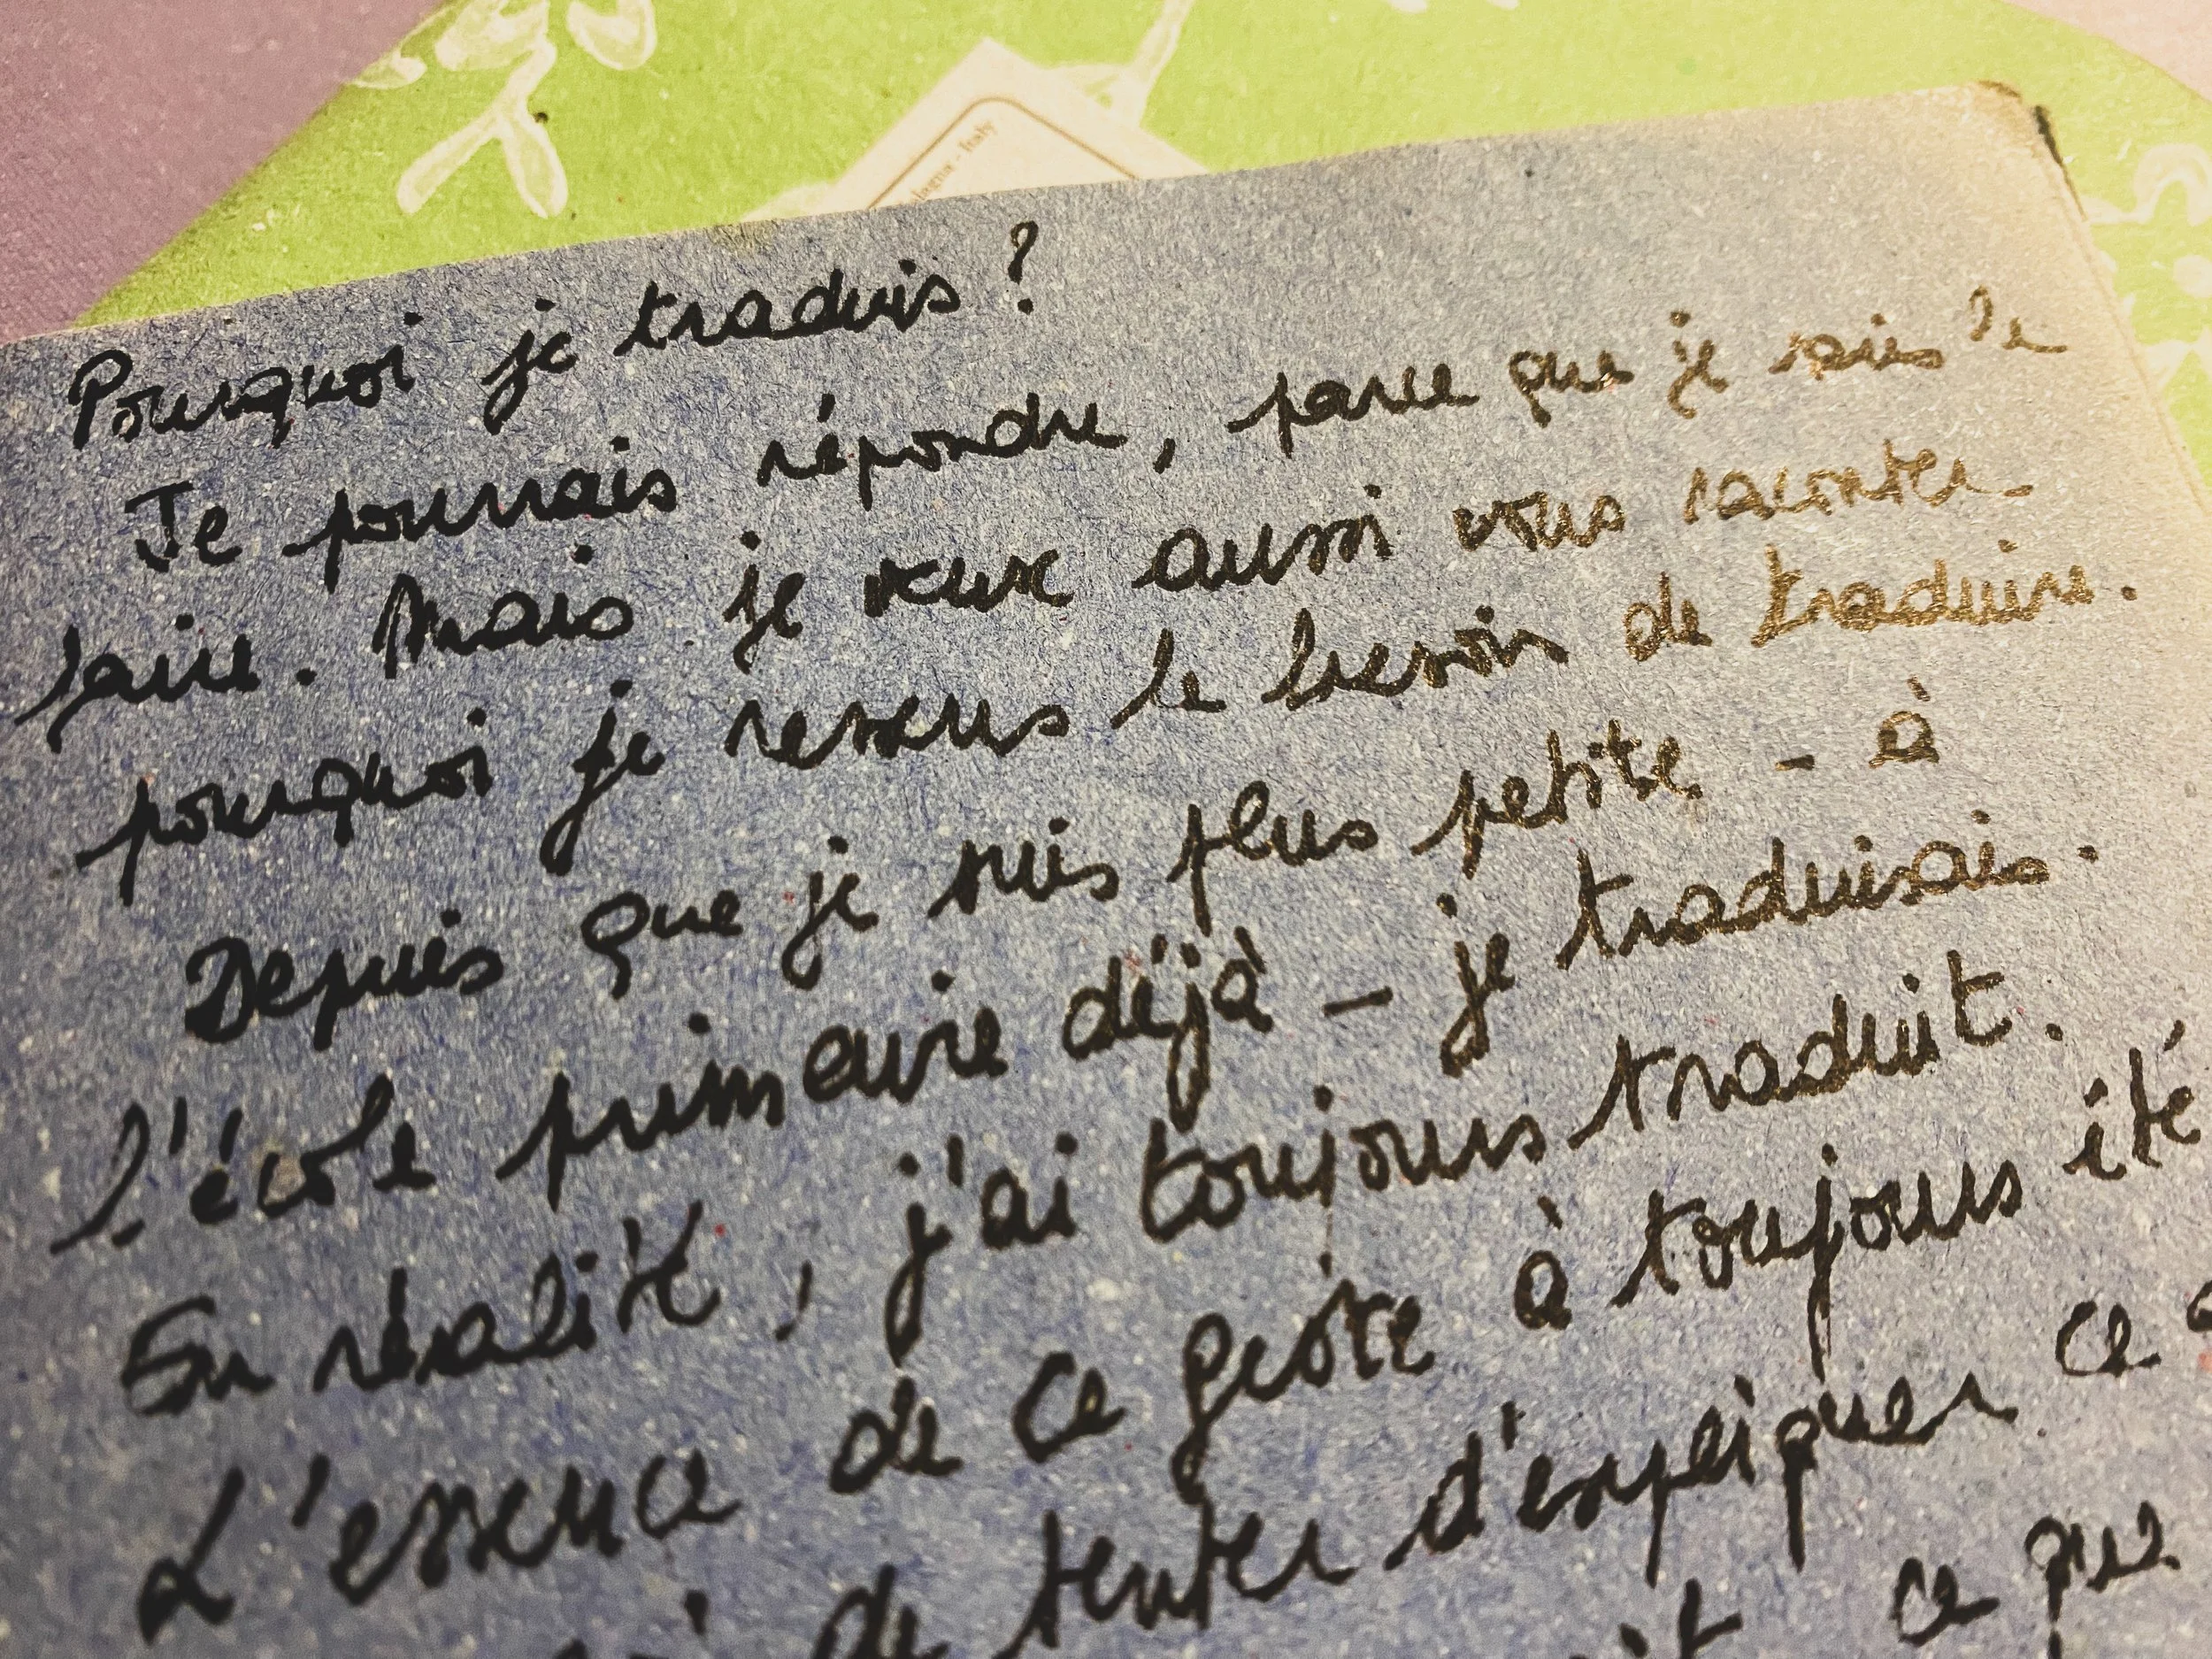 Italy
Pourquoi je traduis ?
Je pourrais répondre, parce que je sais le
faire. Mais je veux aussi vous raconter
pourquoi je ressens le besoin de traduire.
Depuis que je suis plus petite - à
l'école primaire déjà - je traduisais.
En réalité, j'ai toujours traduit.
L'essence de ce geste à toujours été
de tenter d'expliquer ce
ce que